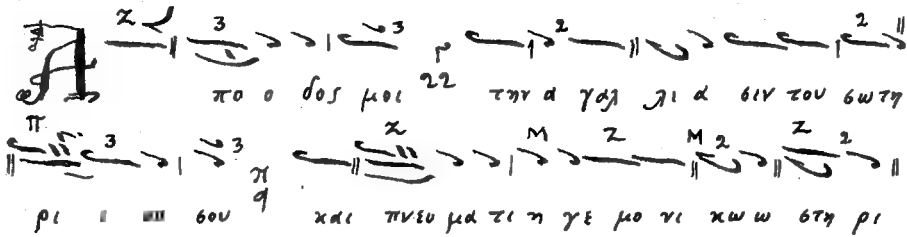 Απο ο δος μοι την α γαλ λι α σιν του σω τη
ρι ι ι σου και πνευ μα τι η γε μο νι κω ω στη ρι